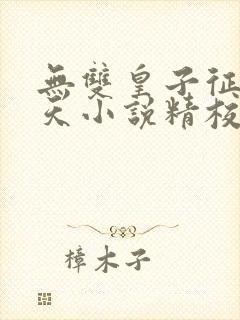 無雙皇子征
天小說精校
樟木子